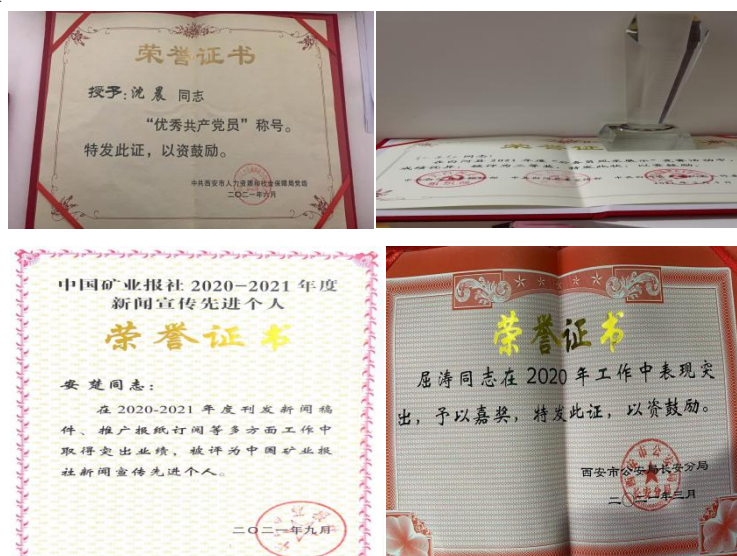 荣誉证书
授予:沈晨 同志
“优秀共产党员”称号。
特发此证,以资鼓励。
中共西安市人力资源和社会保障局党组
二〇二一年六月
荣誉证
同志:
在白河县2021年度
中国矿业报社 2020-2021 年度
新闻宣传先进个人
荣誉证书
安楚同志:
在 2020-2021 年度刊发新闻稿
件、推广报纸订阅等多方面工作中
取得突出业绩,被评为中国矿业报
社新闻宣传先进个人。
二〇二一年九月
荣誉证书
屈涛同志在 2020 年工作中表现突
出,予以嘉奖,特发此证,以资鼓励。
西安市公安局长安分局
二〇二一年三月